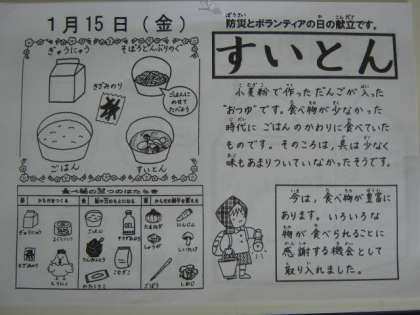 1月15日(金)
ぎゅうにゅう
そぼろどんぶりのぐ
きざみのり
ごはんに
のせて
たべよう
ごはん
すいとん
防災とボランティアの日の献立です。
すいとん
小麦粉で作っただんごが入った
"おつゆ"です。食べ物が少なかった
時代に ごはんのかわりに食べていた
ものです。そのころは、具は少なく
味もあまりついていなかったそうです。
今は、食べ物が豊富に
あります。いろいろな
物が食べられることに
感謝する機会として
取り入れました。
食べ物の三つのはたらき
ぎゅうにゅう
きざみのり
とりにく
ごはん
こむぎこ
たまねぎ
にんじん
しいたけ
ごぼう
しょうが